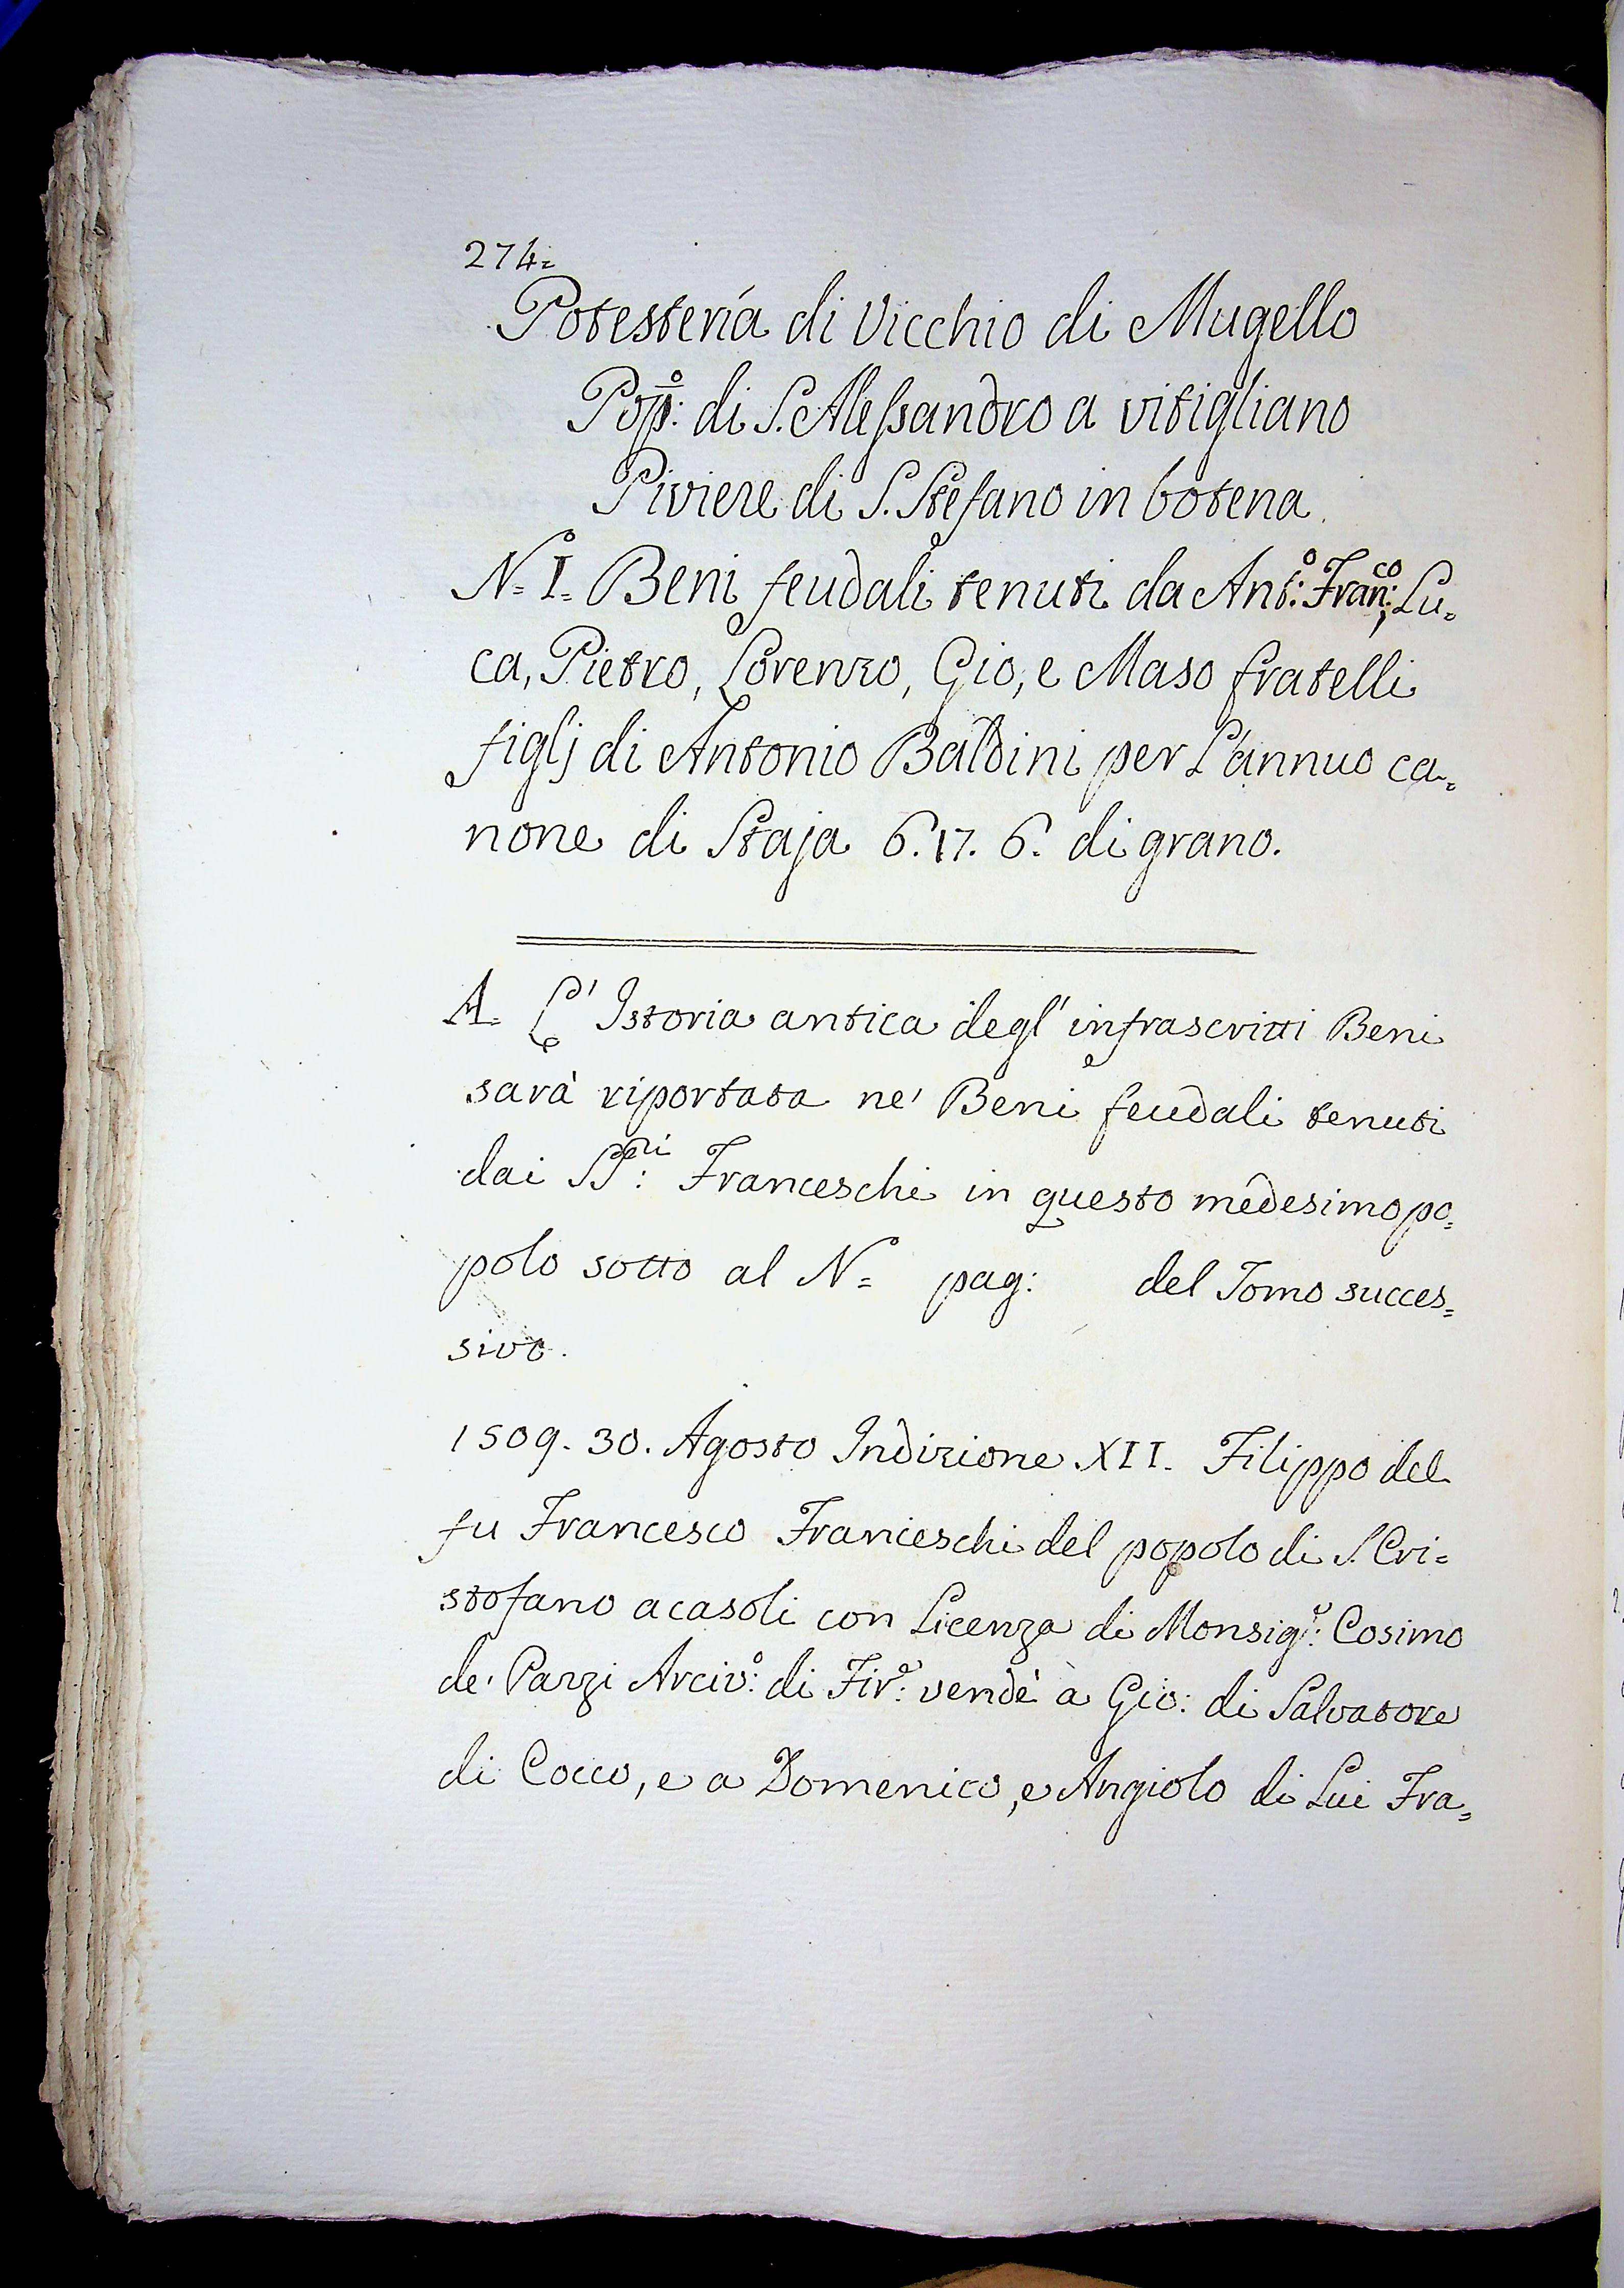 274=
Potestería di Vicchio di Mugello
Popº: di S. Alessandro a vitigliano
Piviere di S. Stefano in botena
N.= I.= Beni feudali tenuti da Antº: Franco:, Lu=
ca, Pietro, Lorenzo, Gio, e Maso fratelli
figlj di Antonio Baldini per L'annuo ca=
none di Staja 6. 17. 6. di grano.
A. L' Istoria antica degl' infrascritti Beni
sarà riportata ne' Beni feudali tenuti
dai SSri: Franceschi in questo medesimo po=
polo sotto al N.= pag: del Tomo succes=
sivo.
1509. 30. Agosto Indizione XII. Filippo del
fu Francesco Franceschi del popolo di S. Cri=
stofano a casoli con Licenza di Monsigr: Cosimo
de' Pazzi Arcivº: di Fire: vendè à Gio: di Salvatore
di Cocco, e a Domenico, e Angiolo di Lui Fra=